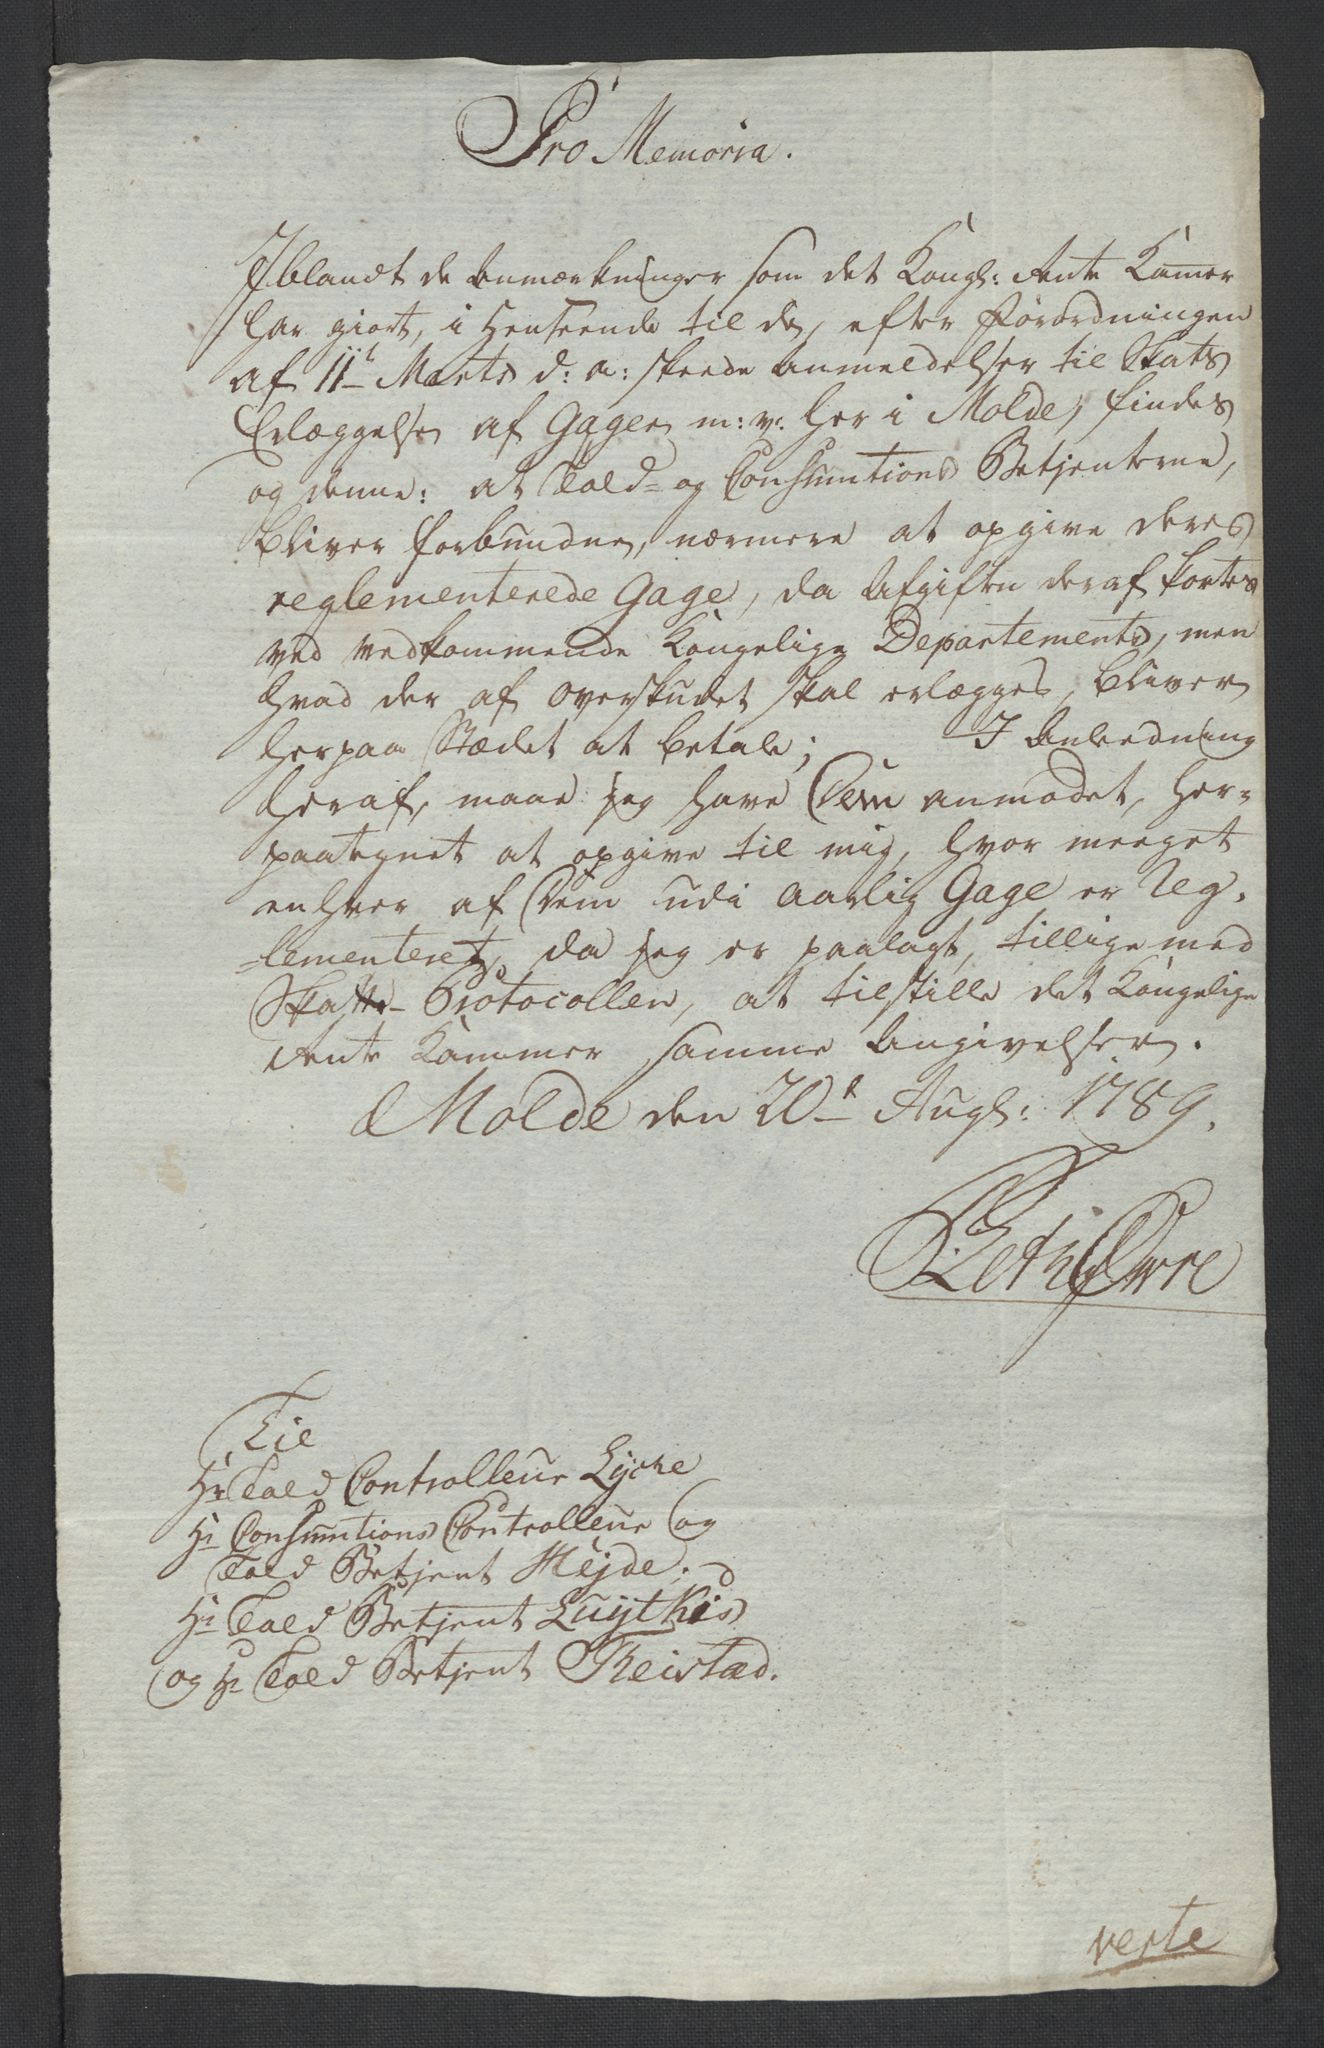 Pro Memoria.
Iblandt de Anmærkninger som det Kongl: Rente Kamer
har giort, i Henseende til de, efter Forordningen
af 11t Marts d: a: skeede Anmeldelser til Skats
Erlæggelse af Gager m: v: her i Molde, findes
og denne: at Told- og Consumtions Betjenterne,
bliver forbundne, nærmere at opgive deres
reglementerede Gage, da Afgiften deraf kortes
ved vedkommende Kongelige Departements, men
hvad der af Overskudet skal erlægges, bliver
herpaa Stædet at betale; I Anledning
heraf, maae jeg have Dem anmodet, her-
paategnet at opgive til mig, hvor meeget
enhver af Dem udi aarlig Gage er Reg-
lementeret, da jeg er paalagt, tillige med
Skatte-Protocollen, at tilstille det Kongelige
Rente Kammer samme Angivelser.
Molde den 20t Augs: 1789.
Til
Hr Told Controlleur Lycke
Hr Consumtions Controlleur og
Told Betjent Heyde.
Hr Told Betjent Luytkis
og Hr Told Betjent Reistad.
verte